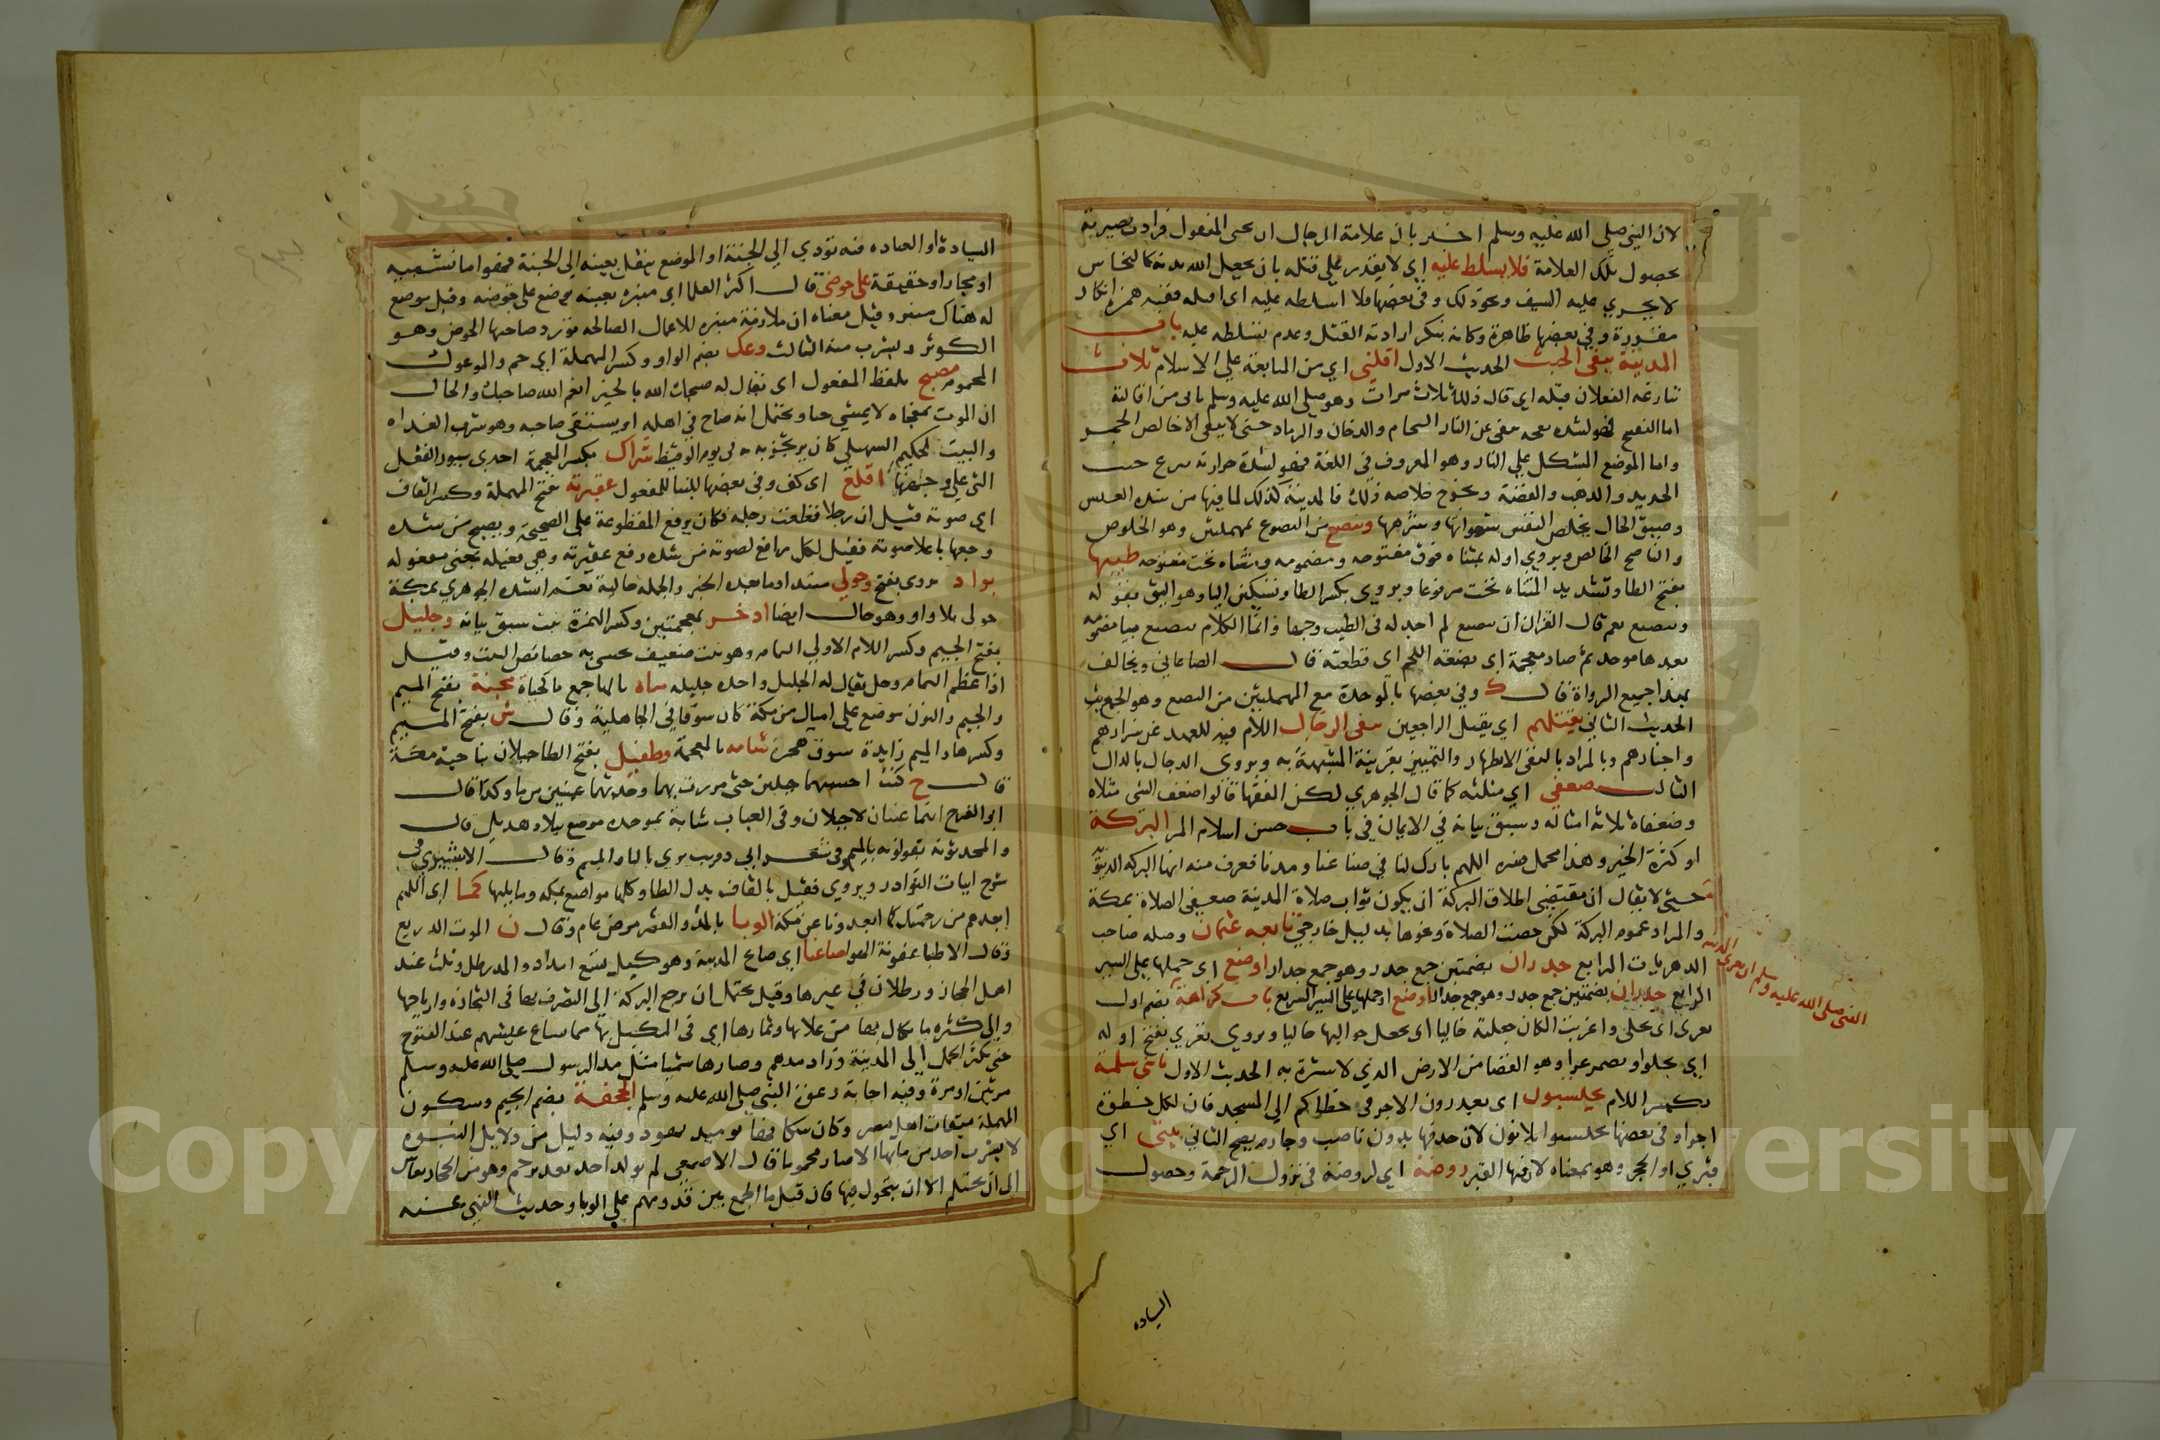 لان النبي صلى الله عليه وسلم اخبر بان علامة الرجال ان يحيي المقتول فزادت بصيرته
بحصول تلك العلامة فلا يسلط عليه اي لا يقدر على قتله بان يجعل الله بدنه كالنحاس
لا يجري عليه السيف ونحو ذلك وفي بعضها فلا اسلطه عليه اي اقتله ففيه همزة انكار
مقدرة وفي بعضها ظاهرة وكانه ينكر ارادته القتل وعدم تسلطه عليه باب
المدينة تنفي الخبث الحديث الاول اقلني اي من المبايعة على الاسلام ثلاث
تنازعه الفعلان قبله اي قال ذلك ثلاث مرات وهو صلى الله عليه وسلم يابى من اقالته
حتى لا يبقى الا خالص الجمر
واما الموضع المشتمل على النار وهو المعروف في اللغة فهو لشدة حرارته ينزع خبث
الحديد والذهب والفضة ويخرج خلاصة ذلك فالمدينة كذلك لما فيها من شدة العيش
وضيق الحال يخلص النفس من شهواتها وشرهها وتنصع من النصوع بمهملتين وهو الخلوص
والناصح الخالص ويروي اوله بمثناة فوق مفتوحة ومضمومة ومثناة تحت مفتوحه طيبها
بفتح الطا وتشديد المثناة تحت مرفوعا ويروى بكسر الطا وتسكين اليا وهو اليق بقوله
وتنصع نعم قال القزاز ان تنصع لم اجد له في الطيب وجها وانما الكلام
بعدها موحدة ثم ضاد معجمة اي بضعة اللحم اي قطعته قال الصاغاني ويخالف
بهذا جميع الرواة قال ك وفي بعضها بالموحدة مع المهملتين من البصع وهو الجمع
الحديث الثاني يقتلهم اي يقتل الراجعين تنفي الرجال اللام فيه للعهد عن شرارهم
واخبارهم وبالمراد بالنفي الاظهار والتمييز بقرينة المشبهة به ويروى الدجال بالدال
الثالث ضعفي اي مثليه كما قال الجوهري لكن الفقها قالوا ضعف الشي مثلاه
وضعفاه ثلاثة امثاله وسبق بيانه في الايمان في باب حسن اسلام المرء البركة
او كثرة الخير وهذا مجمل فسره اللهم بارك لنا في صاعنا ومدنا فعرف منه انها البركة الدنيوية
حتى لا يقال ان مقتضى اطلاق البركة ان يكون ثواب صلاة المدينة ضعفي الصلاة بمكة
والمراد عموم البركة لكن خصت الصلاة ونحوها بدليل خارجي تابعه عثمان وصله صاحب
الدهريات الرابع جدران بضمتين جمع جدر وهو جمع جدار اوضع اي حملها على السير
الرابع جدران بضمتين جمع جدر وهو جمع جدار اوضع اي حملها على السير السريع باب كراهة بضم اوله
يعرى اي يخلى واعريت المكان جعلته خاليا اي يجعل حواليها خاليا ويروى تعرى بفتح اوله
اي يخلوا وتصير عراء وهو الفضا من الارض الذي لا سترة به الحديث الاول يا بني سلمة
بكسر اللام تحتسبون اي تعدون الاجر في خطاكم الى المسجد فان لكل خطوة
اجرا وفي بعضها تحتسبوا بلا نون لان حذفها بدون ناصب وجازم يصح الثاني بيتي اي
قبري او الحجر وهو بمعناه لان فيها القبر روضة اي لروضة في نزول الرحمة وحصول
النبي صلى الله عليه وسلم ان تعرى المدينة
السياده
السيادة او العباده فيه تؤدي الى الجنة او الموضع ينقل بعينه الى الجنة فهو اما تشبيه
او مجاز او حقيقة على حوضي قال اكثر العلما اي منبره بعينه يوضع على حوضه وقيل يوضع
له هناك منبر وقيل معناه ان ملازمة منبره للاعمال الصالحة تورد صاحبها الحوض وهو
الكوثر ويشرب منه الثالث وعك بضم الواو وكسر المهملة اي حم والموعوك
المحموم مصبح بلفظ المفعول اي يقال له صبحك الله بالخير انعم الله صاحبك والحال
ان الموت يفجاه لا يمشي حيا ويحتمل انه صاح في اهله او يستقى صاحبه وهو شرب الغداة
والبيت لحكيم النهشلي كان يرتجز به في يوم الوقيط شراك بكسر المعجمة احدى سيور النعل
التي على وجهها اقلع اي كف وفي بعضها للبنا للمفعول عقيرته بفتح المهملة وكسر القاف
اي صوته قيل ان رجلا قطعت رجله فكان يرفع المقطوعة على الصحيحة ويصيح من شدة
وجعها باعلا صوته فقيل لكل رافع لصوته من شدة رفع عقيرته وهي فعيلة بمعنى مفعوله
بواد يروى بفتح وحولي مبتدا وما بعده الخبر والجملة حالية نعم انشده الجوهري بمكة
حولى بلا واو وهو حال ايضا اذخر بمعجمتين وكسر الهمزة نبت سبق بيانه وجليل
بفتح الجيم وكسر اللام الاولى الثمام وهو نبت ضعيف يحشى به خصائص البيت وقيل
اذا عظم الثمام وجل يقال له الجليل واحده جليلة مياه بالها جمع ما لحياة مجنة بفتح الميم
والجيم والنون موضع على اميال من مكة كان سوقا في الجاهلية وقال ش بفتح الميم
وكسرها والميم زايدة سوق هجر شامه بالمعجمة وطفيل بفتح الطا جبلان بناحية مكة
قال ح كنت احسبهما جبلين حتى مررت بهما وجدتهما عينين من ما وكذا قال
ابو الفتح انهما عينان لا جبلان وفي العباب شابة بموحدة موضع ببلاد هذيل قال
والمحدثون يقولونه بالميم وفي شعر ابي ذويب يروى بالبا والميم وقال
شرح ابيات النوادر ويروي قفيل بالقاف بدل الطا وكلها مواضع بمكة وما يليها كما اي اللهم
ابعدهم من رحمتك كما ابعدونا عن مكة الوبا بالمد والقصر مرض عام وقال ن الموت الذريع
وقال الاطبا عفونة الهوا صاعنا اي صاع المدينة وهو كيل يسع امداد والمد رطل وثلث عند
اهل الحجاز ورطلان في غيرها وقيل يحتمل ان يرجع البركة الى التصرف بها في التجارة وارباحها
والى كثرة ما يكال بها من غلاتها وثمارها اي في المكيل بها مما يساع عليشهم عند الفتوح
حتى كثر الحمل الى المدينة وزاد مدهم وصار هاشميا مثل مد الرسول صلى الله عليه وسلم
مرتين او مرة وفيه اجابة دعوة النبي صلى الله عليه وسلم الجحفة بضم الجيم وسكون
المهملة ميقات اهل مصر وكان سكانها يوميذ يهود وفيه دليل من دلايل النبوة
لا يشرب احد من مائها الا صار محموما قال الاصمعي لم يولد احد بغدير خم وهو من الجحار فعاش
الى ان يحتلم الا ان يتحول منها فان قيل ما الجمع بين قدومهم على الوبا وحديث النهي عنه